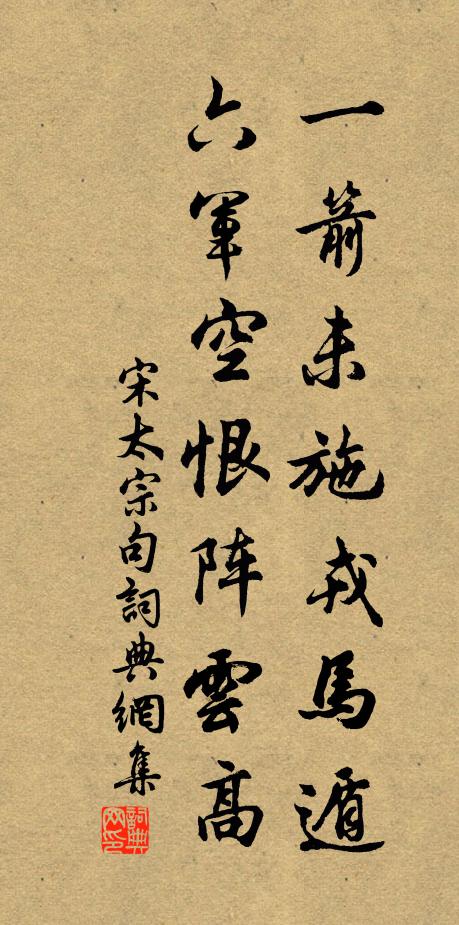 一箭未施戎馬遁
六軍空恨阵雲高
宋太宗句詞典網集
詞典网印